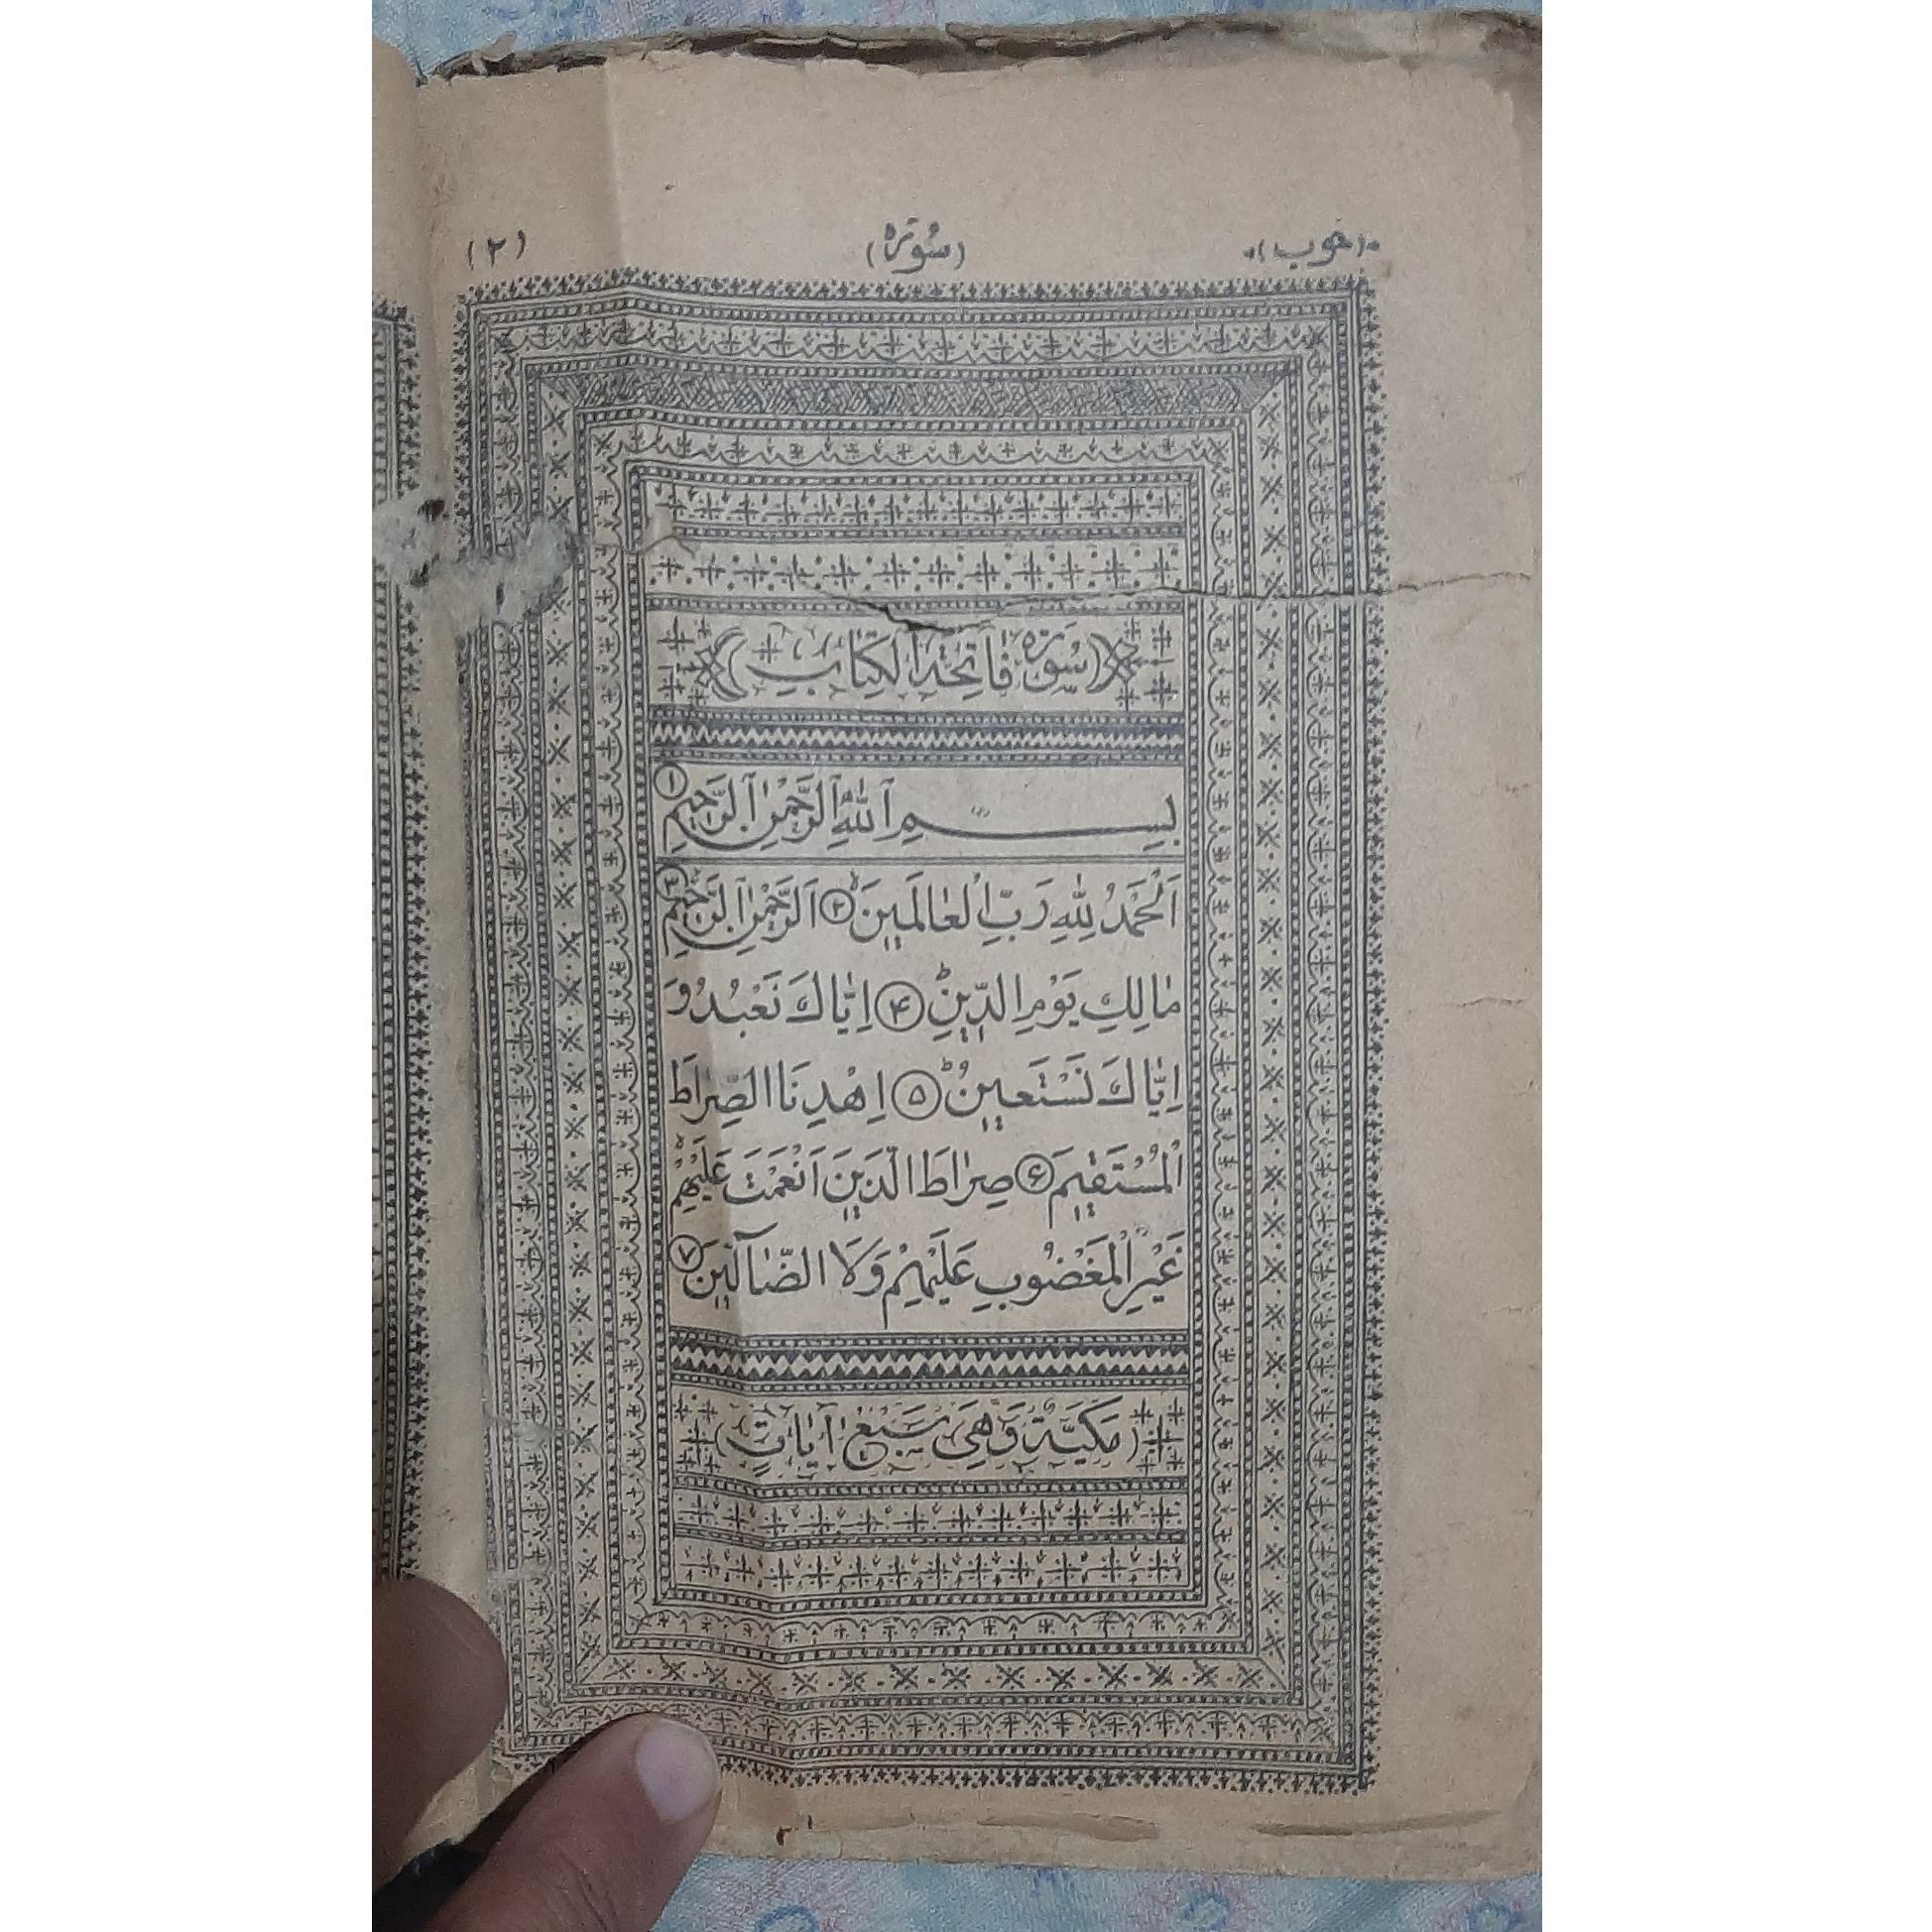 (خوب) (سُورَة) (٢)
(سُورَة فَاتِحَةُ الْكِتَابِ)
بِسْمِ اللّٰهِ الرَّحْمٰنِ الرَّحِيْمِ ①
اَلْحَمْدُ لِلّٰهِ رَبِّ الْعَالَمِيْنَ ② اَلرَّحْمٰنِ الرَّحِيْمِ ③
مَالِكِ يَوْمِ الدِّيْنِ ④ اِيَّاكَ نَعْبُدُ وَ
اِيَّاكَ نَسْتَعِيْنُ ⑤ اِهْدِنَا الصِّرَاطَ
الْمُسْتَقِيْمَ ⑥ صِرَاطَ الَّذِيْنَ اَنْعَمْتَ عَلَيْهِمْ
غَيْرِ الْمَغْضُوْبِ عَلَيْهِمْ وَلَا الضَّآلِّيْنَ ⑦
(مَكِّيَّةٌ وَّهِيَ سَبْعُ اٰيَاتٍ)